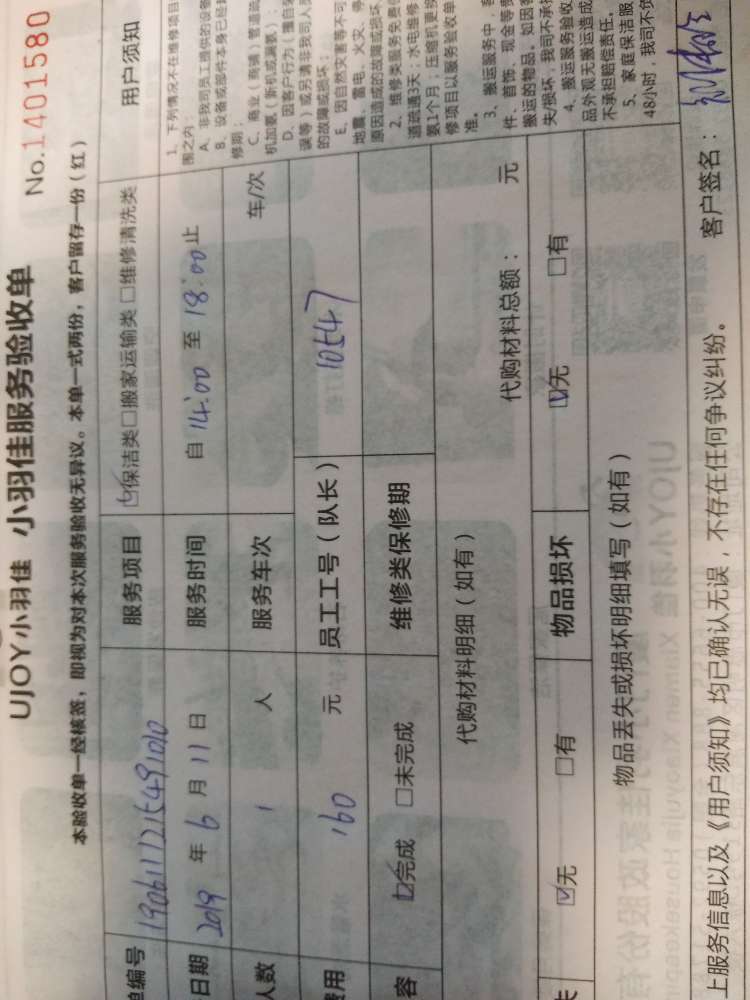 UJOY小羽佳 小羽佳服务验收单
No.1401580
本验收单一经核签，即视为对本次服务验收无异议。本单一式两份，客户留存一份（红）
单编号 190611121549101010 服务项目 ☑保洁类□搬家运输类 □维修清洗类
日期 2019 年 6 月 11 日 服务时间 自 14:00 至 18:00 止
人数 1 人 服务车次 车/次
费用 160 元 员工工号（队长） 10547
容 ☑完成 □未完成 维修类保修期
代购材料明细（如有） 代购材料总额： 元
失 ☑无 □有 物品损坏 ☑无 □有
物品丢失或损坏明细填写（如有）
用户须知
1、下列情况不在维修项目
围之内：
A、非我司员工提供的设备
B、设备或部件本身已经
修期；
C、商业（商铺）管道疏
机加氨（新机或漏氨）；
D、因客户行为（擅自
误等）或另请非我司人员
的故障或损坏；
E、因自然灾害等不可
地震、雷电、火灾、停
原因造成的故障或损坏
2、维修类服务免费
道疏通3天；水电维修
氨1个月；压缩机更换
修项目以服务验收单
准。
3、搬运服务中，
件、首饰、现金等贵
搬运的物品。如因客
失/损坏，我司不承担
4、搬运服务验收
品外观无搬运造成
不承担赔偿责任。
5、家庭保洁服
48小时，我司不负
上服务信息以及《用户须知》均已确认无误，不存在任何争议纠纷。 客户签名：